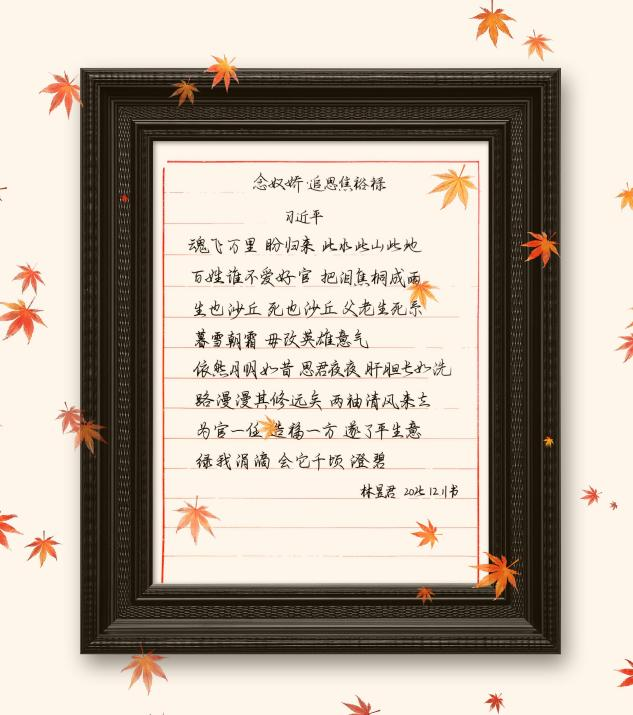 念奴娇·追思焦裕禄
习近平
魂飞万里 盼归来 此水此山此地
百姓谁不爱好官 把泪焦桐成雨
生也沙丘 死也沙丘 父老生死系
暮雪朝霜 毋改英雄意气
依然月明如昔 思君夜夜 肝胆长如洗
路漫漫其修远矣 两袖清风来去
为官一任 造福一方 遂了平生意
绿我涓滴 会它千顷 澄碧
林昱君 2025 12 11书